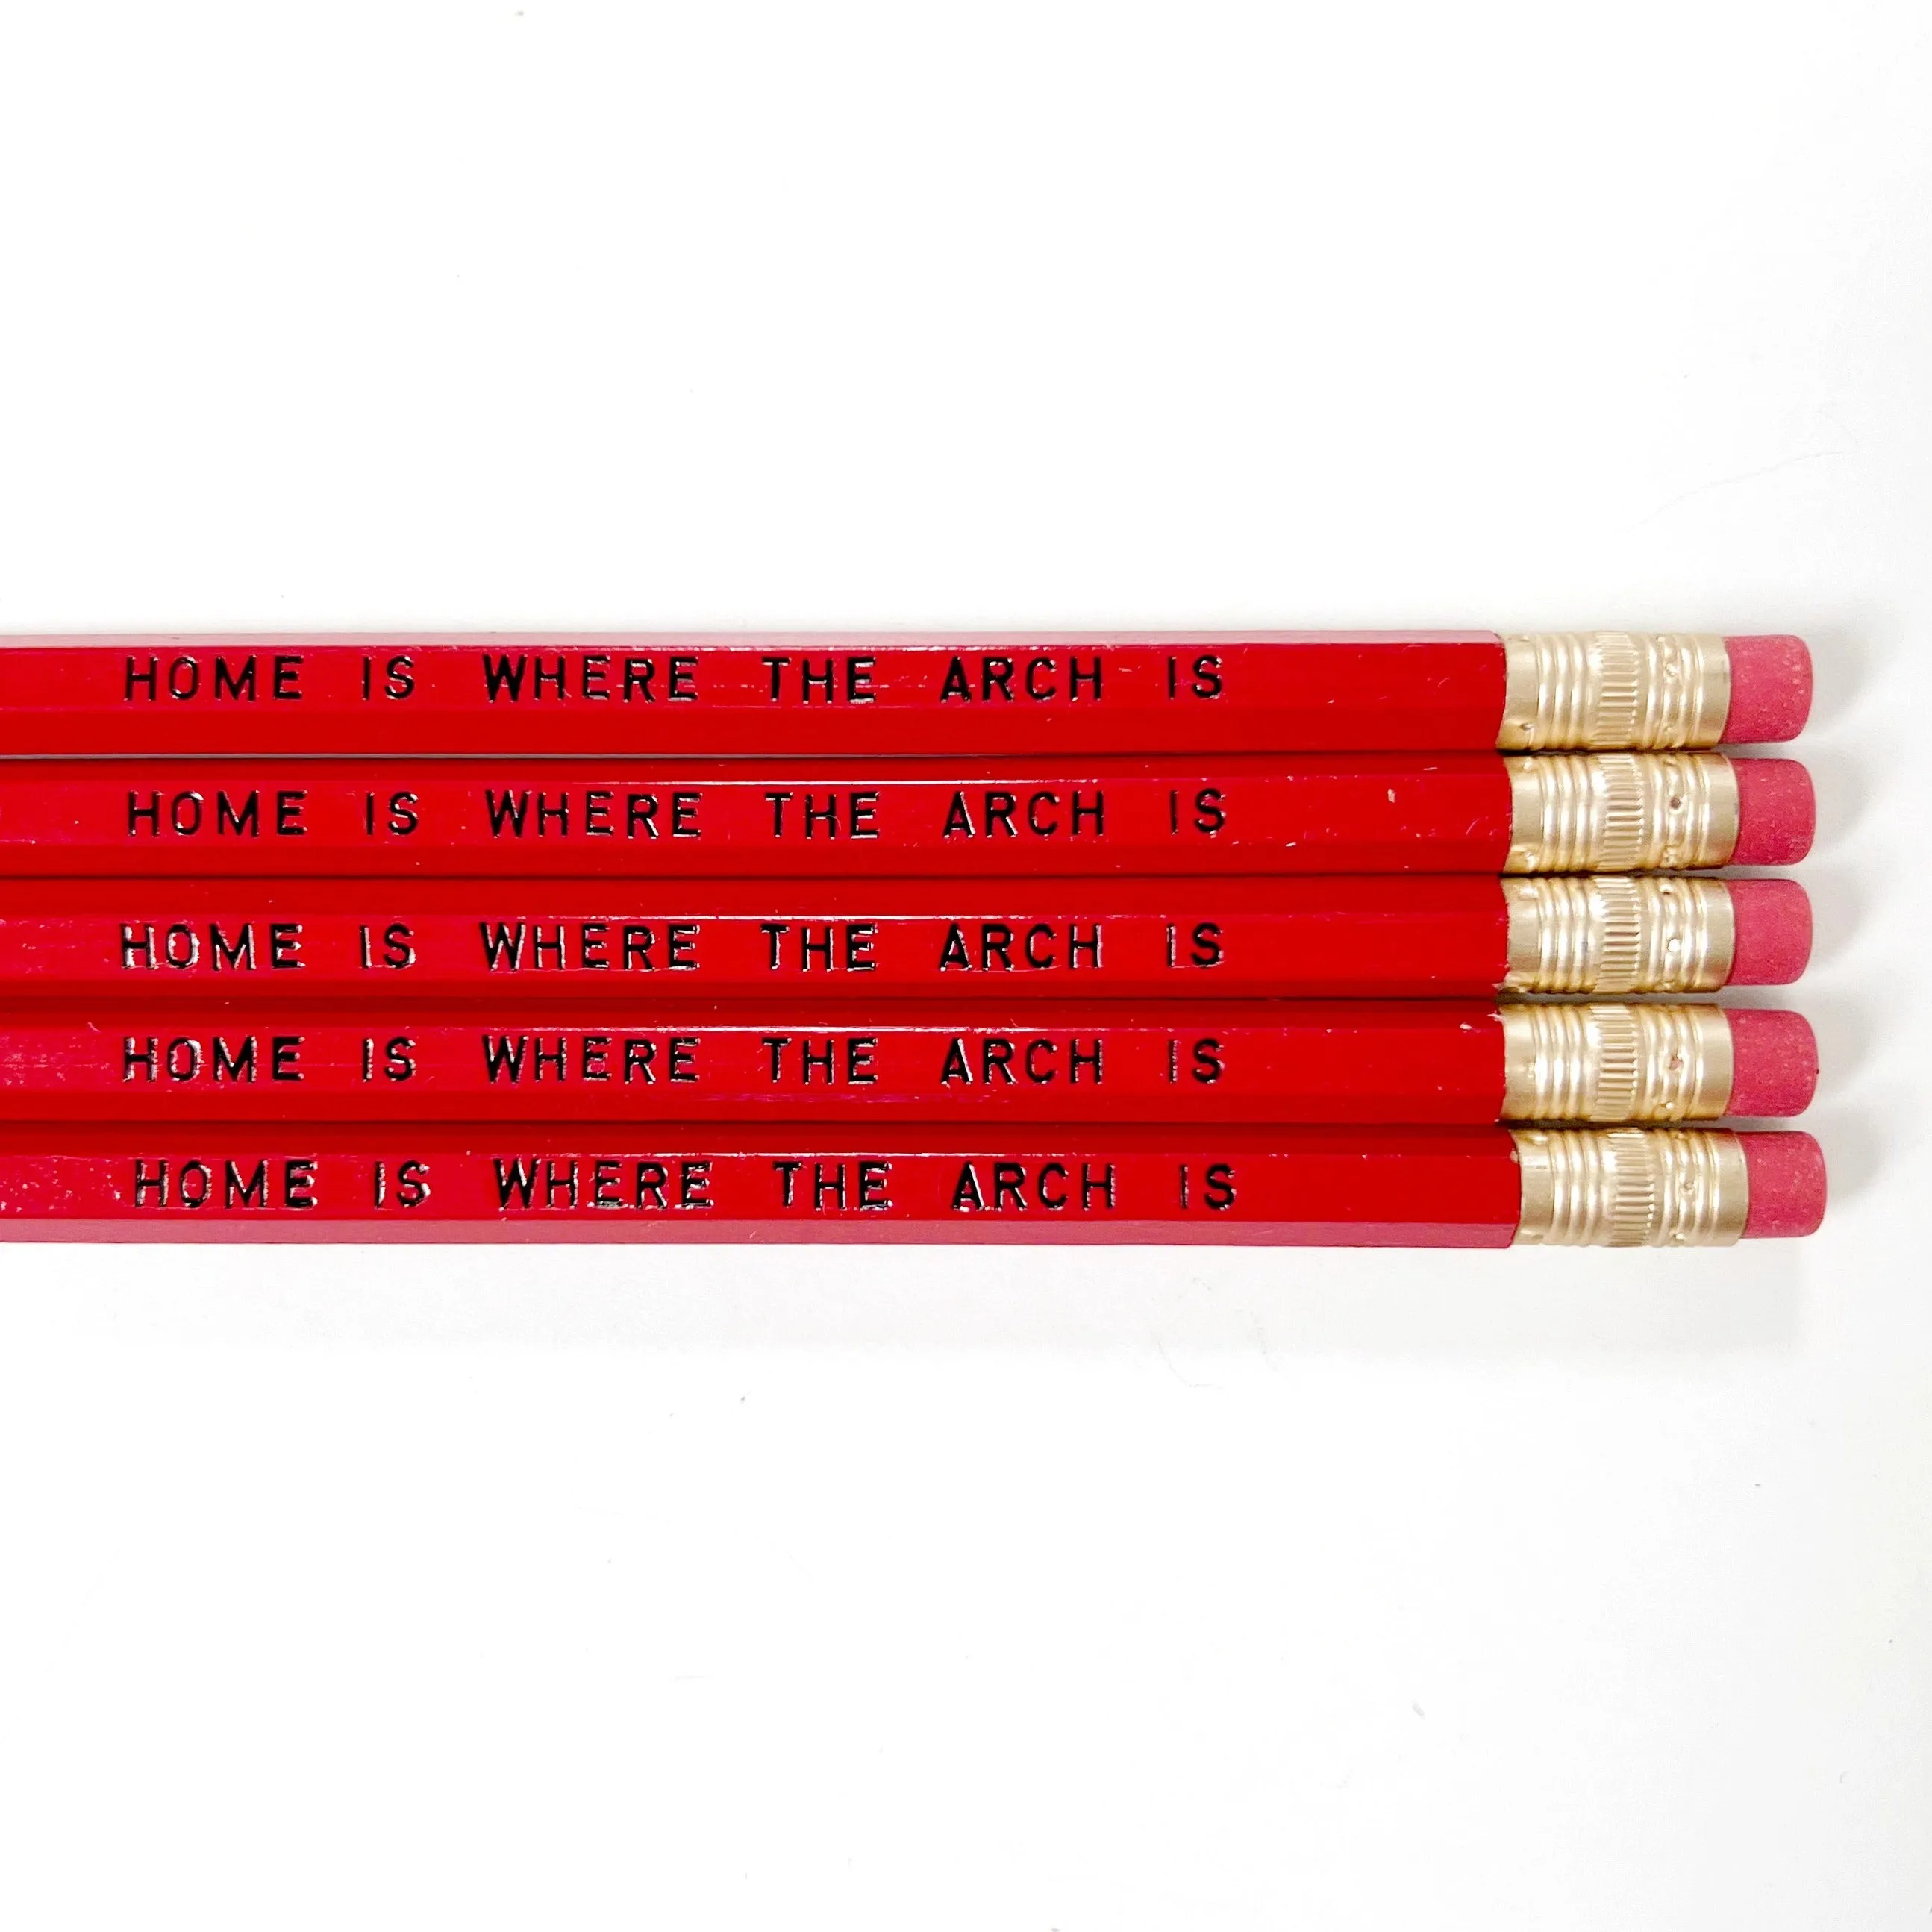 HOME IS WHERE THE ARCH IS
HOME IS WHERE THE ARCH IS
HOME IS WHERE THE ARCH IS
HOME IS WHERE THE ARCH IS
HOME IS WHERE THE ARCH IS